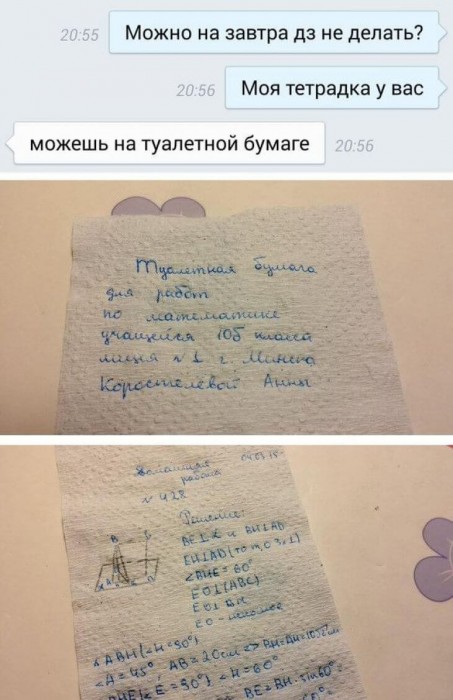 20:55 Можно на завтра дз не делать?
20:56 Моя тетрадка у вас
можешь на туалетной бумаге 20:56
Туалетная бумага
для работ
по математике
учащейся 10б класса
лицея №1 г. Минска
Коростелёвой Анны
Домашняя
работа
№ 428
Решение:
BH⊥AD
EH⊥AD (по т. о 3х⊥)
= 60°
EO⊥(ABC)
EO⊥BH
EO - искомое
ABH (<H=90°)
<A=45°, AB=20см => BH=AH=10√2см
<E=90°) <H=60°
BE=BH·sin60°=